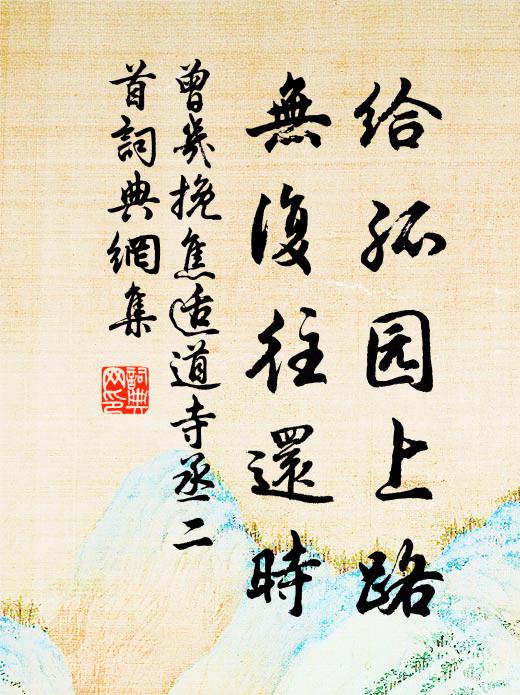 给孤园上路
無復往還時
曾幾挽焦适道寺丞二
首詞典網集
詞典網印